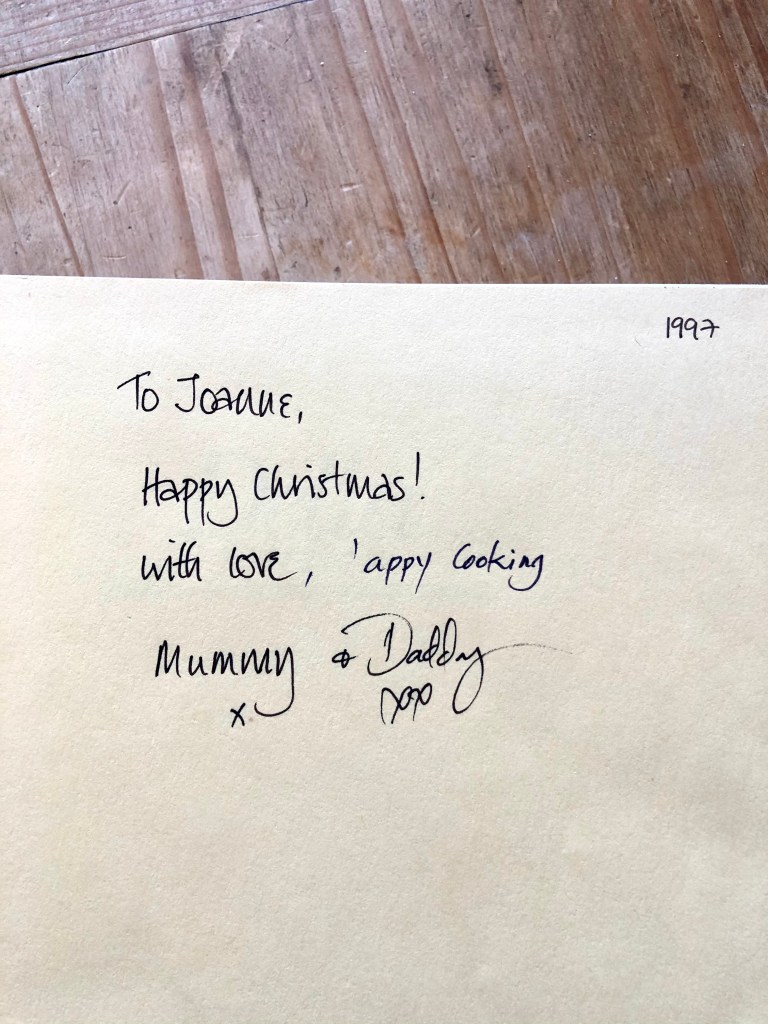 1997
To Joanne,
Happy Christmas!
with love, 'appy Cooking
Mummy & Daddy
x xoxo